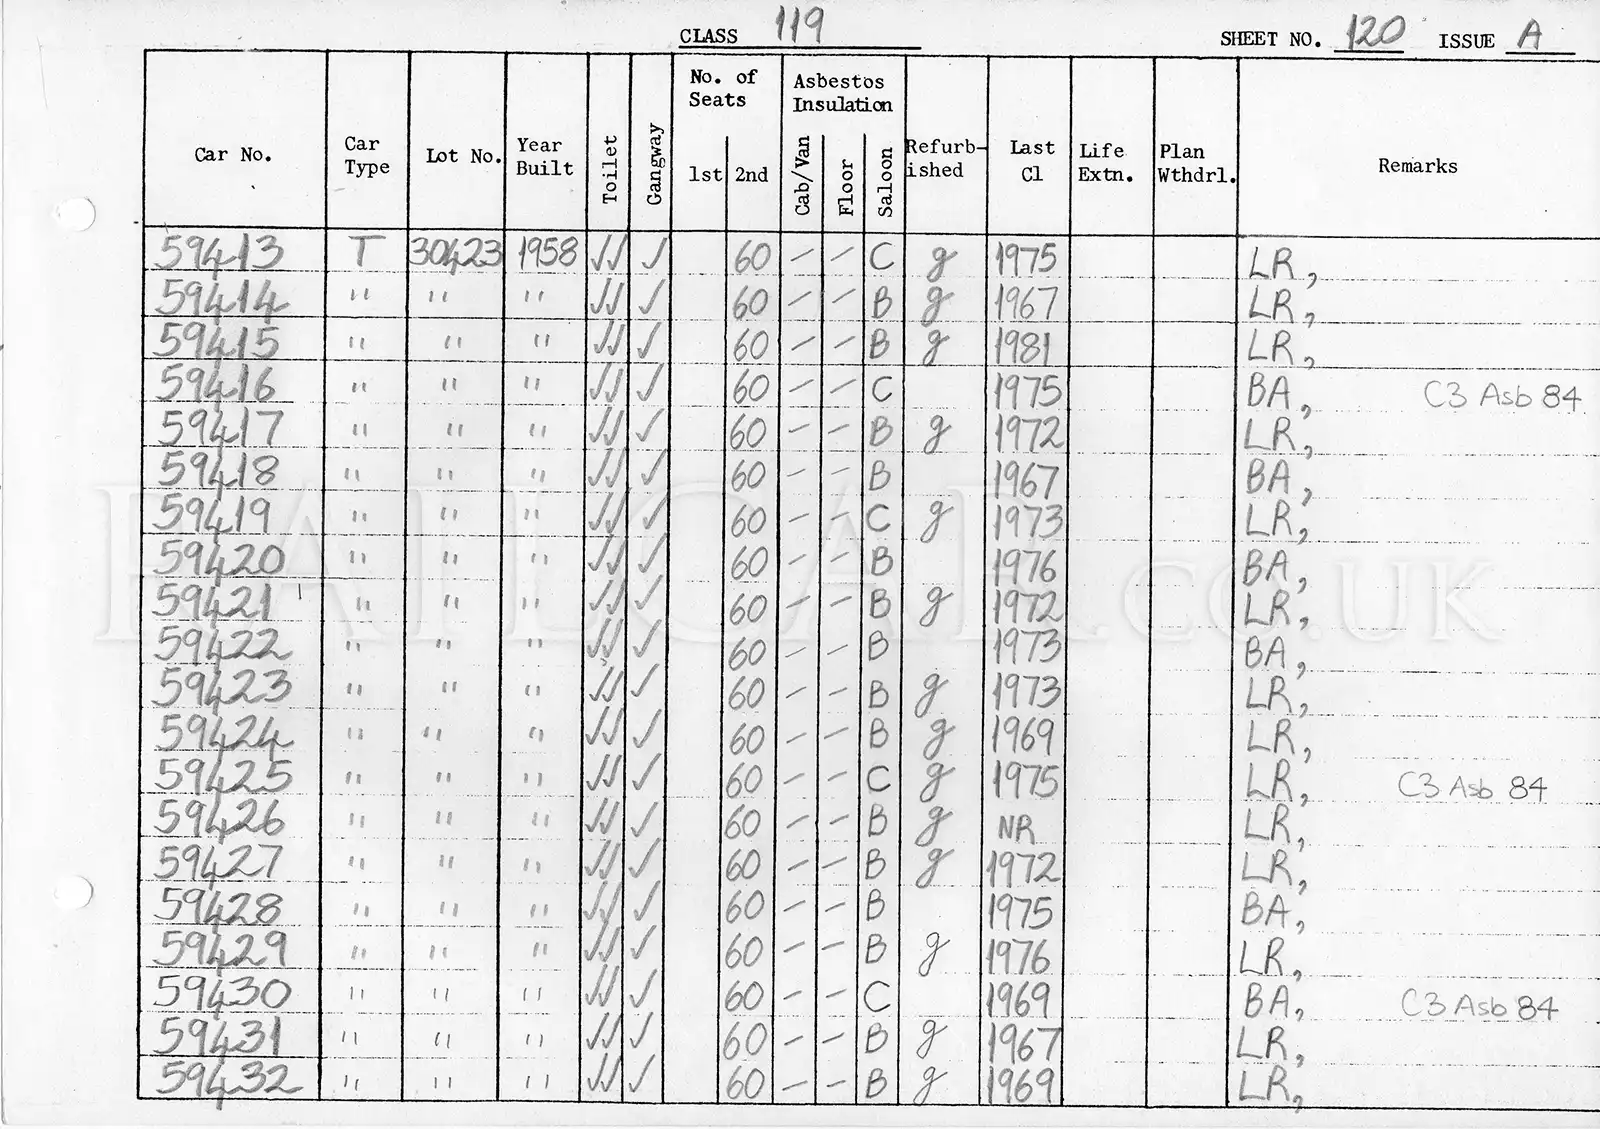 CLASS 119 SHEET NO. 120 ISSUE A
Car No. Car Type Lot No. Year Built Toilet Gangway No. of Seats 1st 2nd Asbestos Insulation Cab/Van Floor Saloon Refurb-ished Last Cl Life Extn. Plan Wthdrl. Remarks
59413 T 30423 1958 ✓✓ ✓ 60 – – C g 1975 LR,
59414 " " " ✓✓ ✓ 60 – – B g 1967 LR,
59415 " " " ✓✓ ✓ 60 – – B g 1981 LR,
59416 " " " ✓✓ ✓ 60 – – C 1975 BA, C3 Asb 84
59417 " " " ✓✓ ✓ 60 – – B g 1972 LR,
59418 " " " ✓✓ ✓ 60 – – B 1967 BA,
59419 " " " ✓✓ ✓ 60 – – C g 1973 LR,
59420 " " " ✓✓ ✓ 60 – – B 1976 BA,
59421 " " " ✓✓ ✓ 60 – – B g 1972 LR,
59422 " " " ✓✓ ✓ 60 – – B 1973 BA,
59423 " " " ✓✓ ✓ 60 – – B g 1973 LR,
59424 " " " ✓✓ ✓ 60 – – B g 1969 LR,
59425 " " " ✓✓ ✓ 60 – – C g 1975 LR, C3 Asb 84
59426 " " " ✓✓ ✓ 60 – – B g NR LR,
59427 " " " ✓✓ ✓ 60 – – B g 1972 LR,
59428 " " " ✓✓ ✓ 60 – – B 1975 BA,
59429 " " " ✓✓ ✓ 60 – – B g 1976 LR,
59430 " " " ✓✓ ✓ 60 – – C 1969 BA, C3 Asb 84
59431 " " " ✓✓ ✓ 60 – – B g 1967 LR,
59432 " " " ✓✓ ✓ 60 – – B g 1969 LR,
RAILCAR.CO.UK